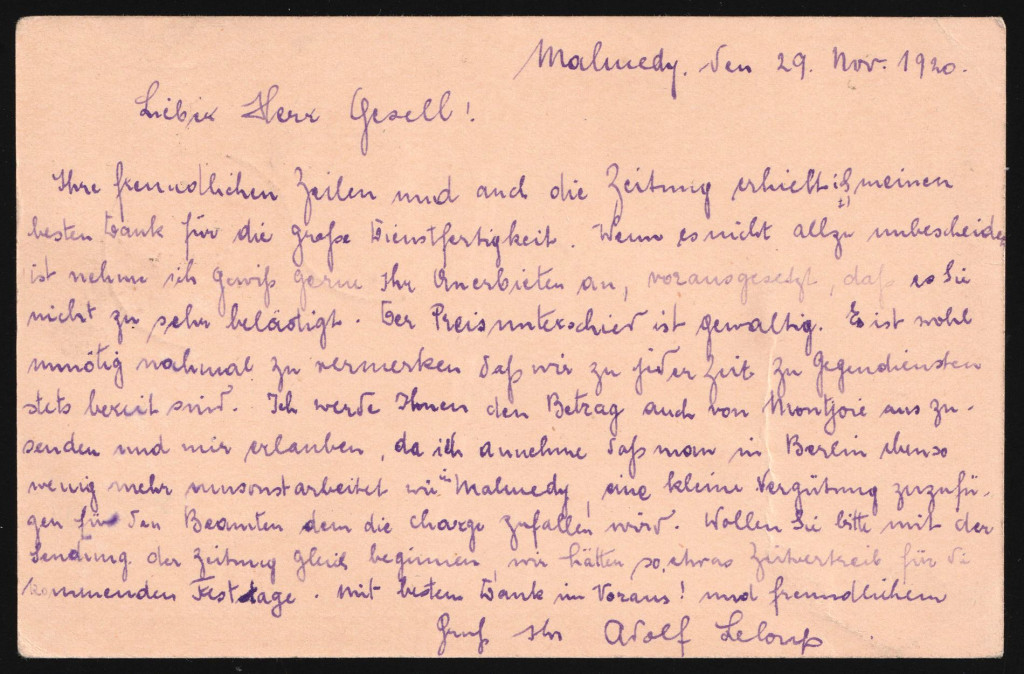 Malmedy, den 29. Nov. 1920.
Lieber Herr Gesell!
Ihre freundlichen Zeilen und auch die Zeitung erhielt ich, meinen
besten Dank für die große Dienstfertigkeit. Wenn es nicht allzu unbescheiden
ist nehme ich gewiß gerne Ihr Anerbieten an, vorausgesetzt, daß es Sie
nicht zu sehr belästigt. Der Preisunterschied ist gewaltig. Es ist wohl
unnötig nochmal zu vermerken daß wir zu jeder Zeit zu Gegendiensten
stets bereit sind. Ich werde Ihnen den Betrag auch von Montjoie aus zu-
senden und mir erlauben, da ich annehme daß man in Berlin ebenso
wenig mehr umsonst arbeitet wie in Malmedy, eine kleine Vergütung zuzufü-
gen für den Beamten dem die Charge zufallen wird. Wollen Sie bitte mit der
Sendung der Zeitung gleich beginnen, wir hätten so etwas Zeitvertreib für die
kommenden Festtage. Mit bestem Dank im Voraus! und freundlichem
Gruß Ihr Adolf Leloup